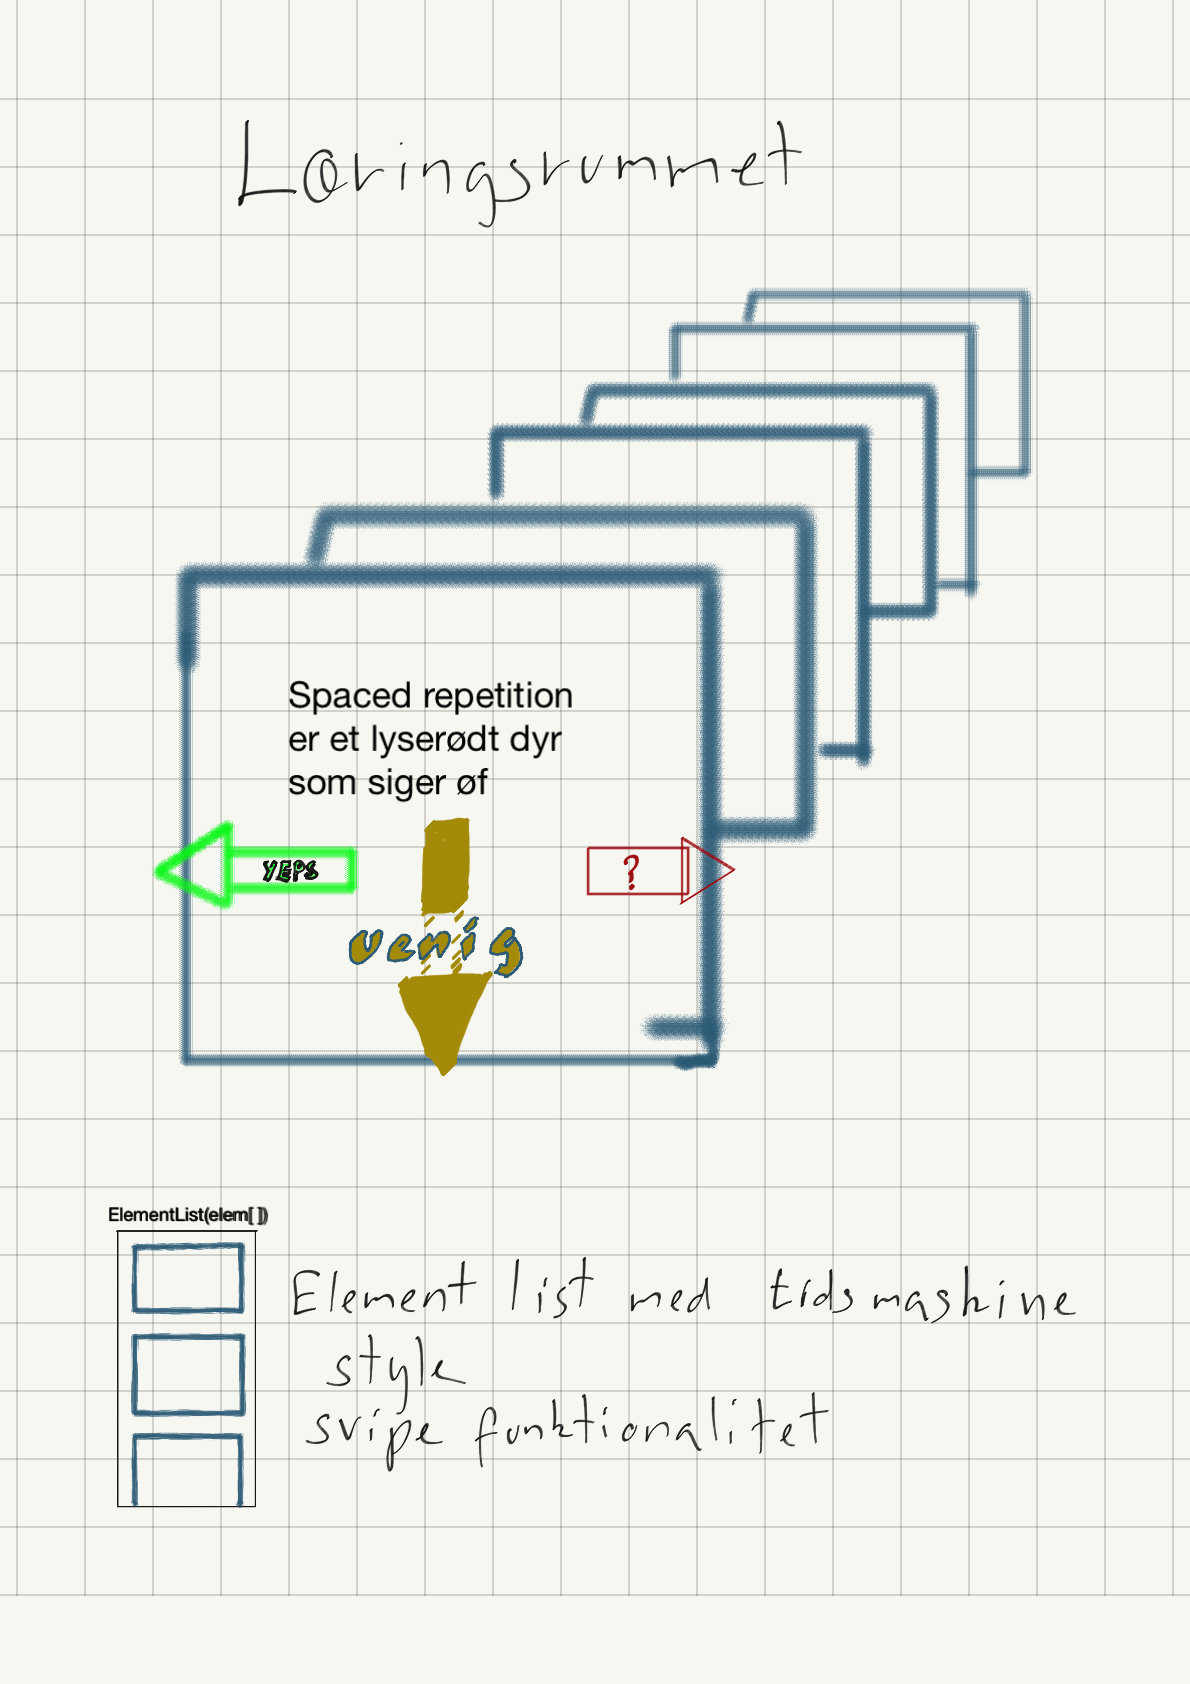 Læringsrummet
Spaced repetition
er et lyserødt dyr
som siger øf
YEPS
?
uenig
ElementList(elem[ ])
Element list med tidsmashine
style
svipe funktionalitet